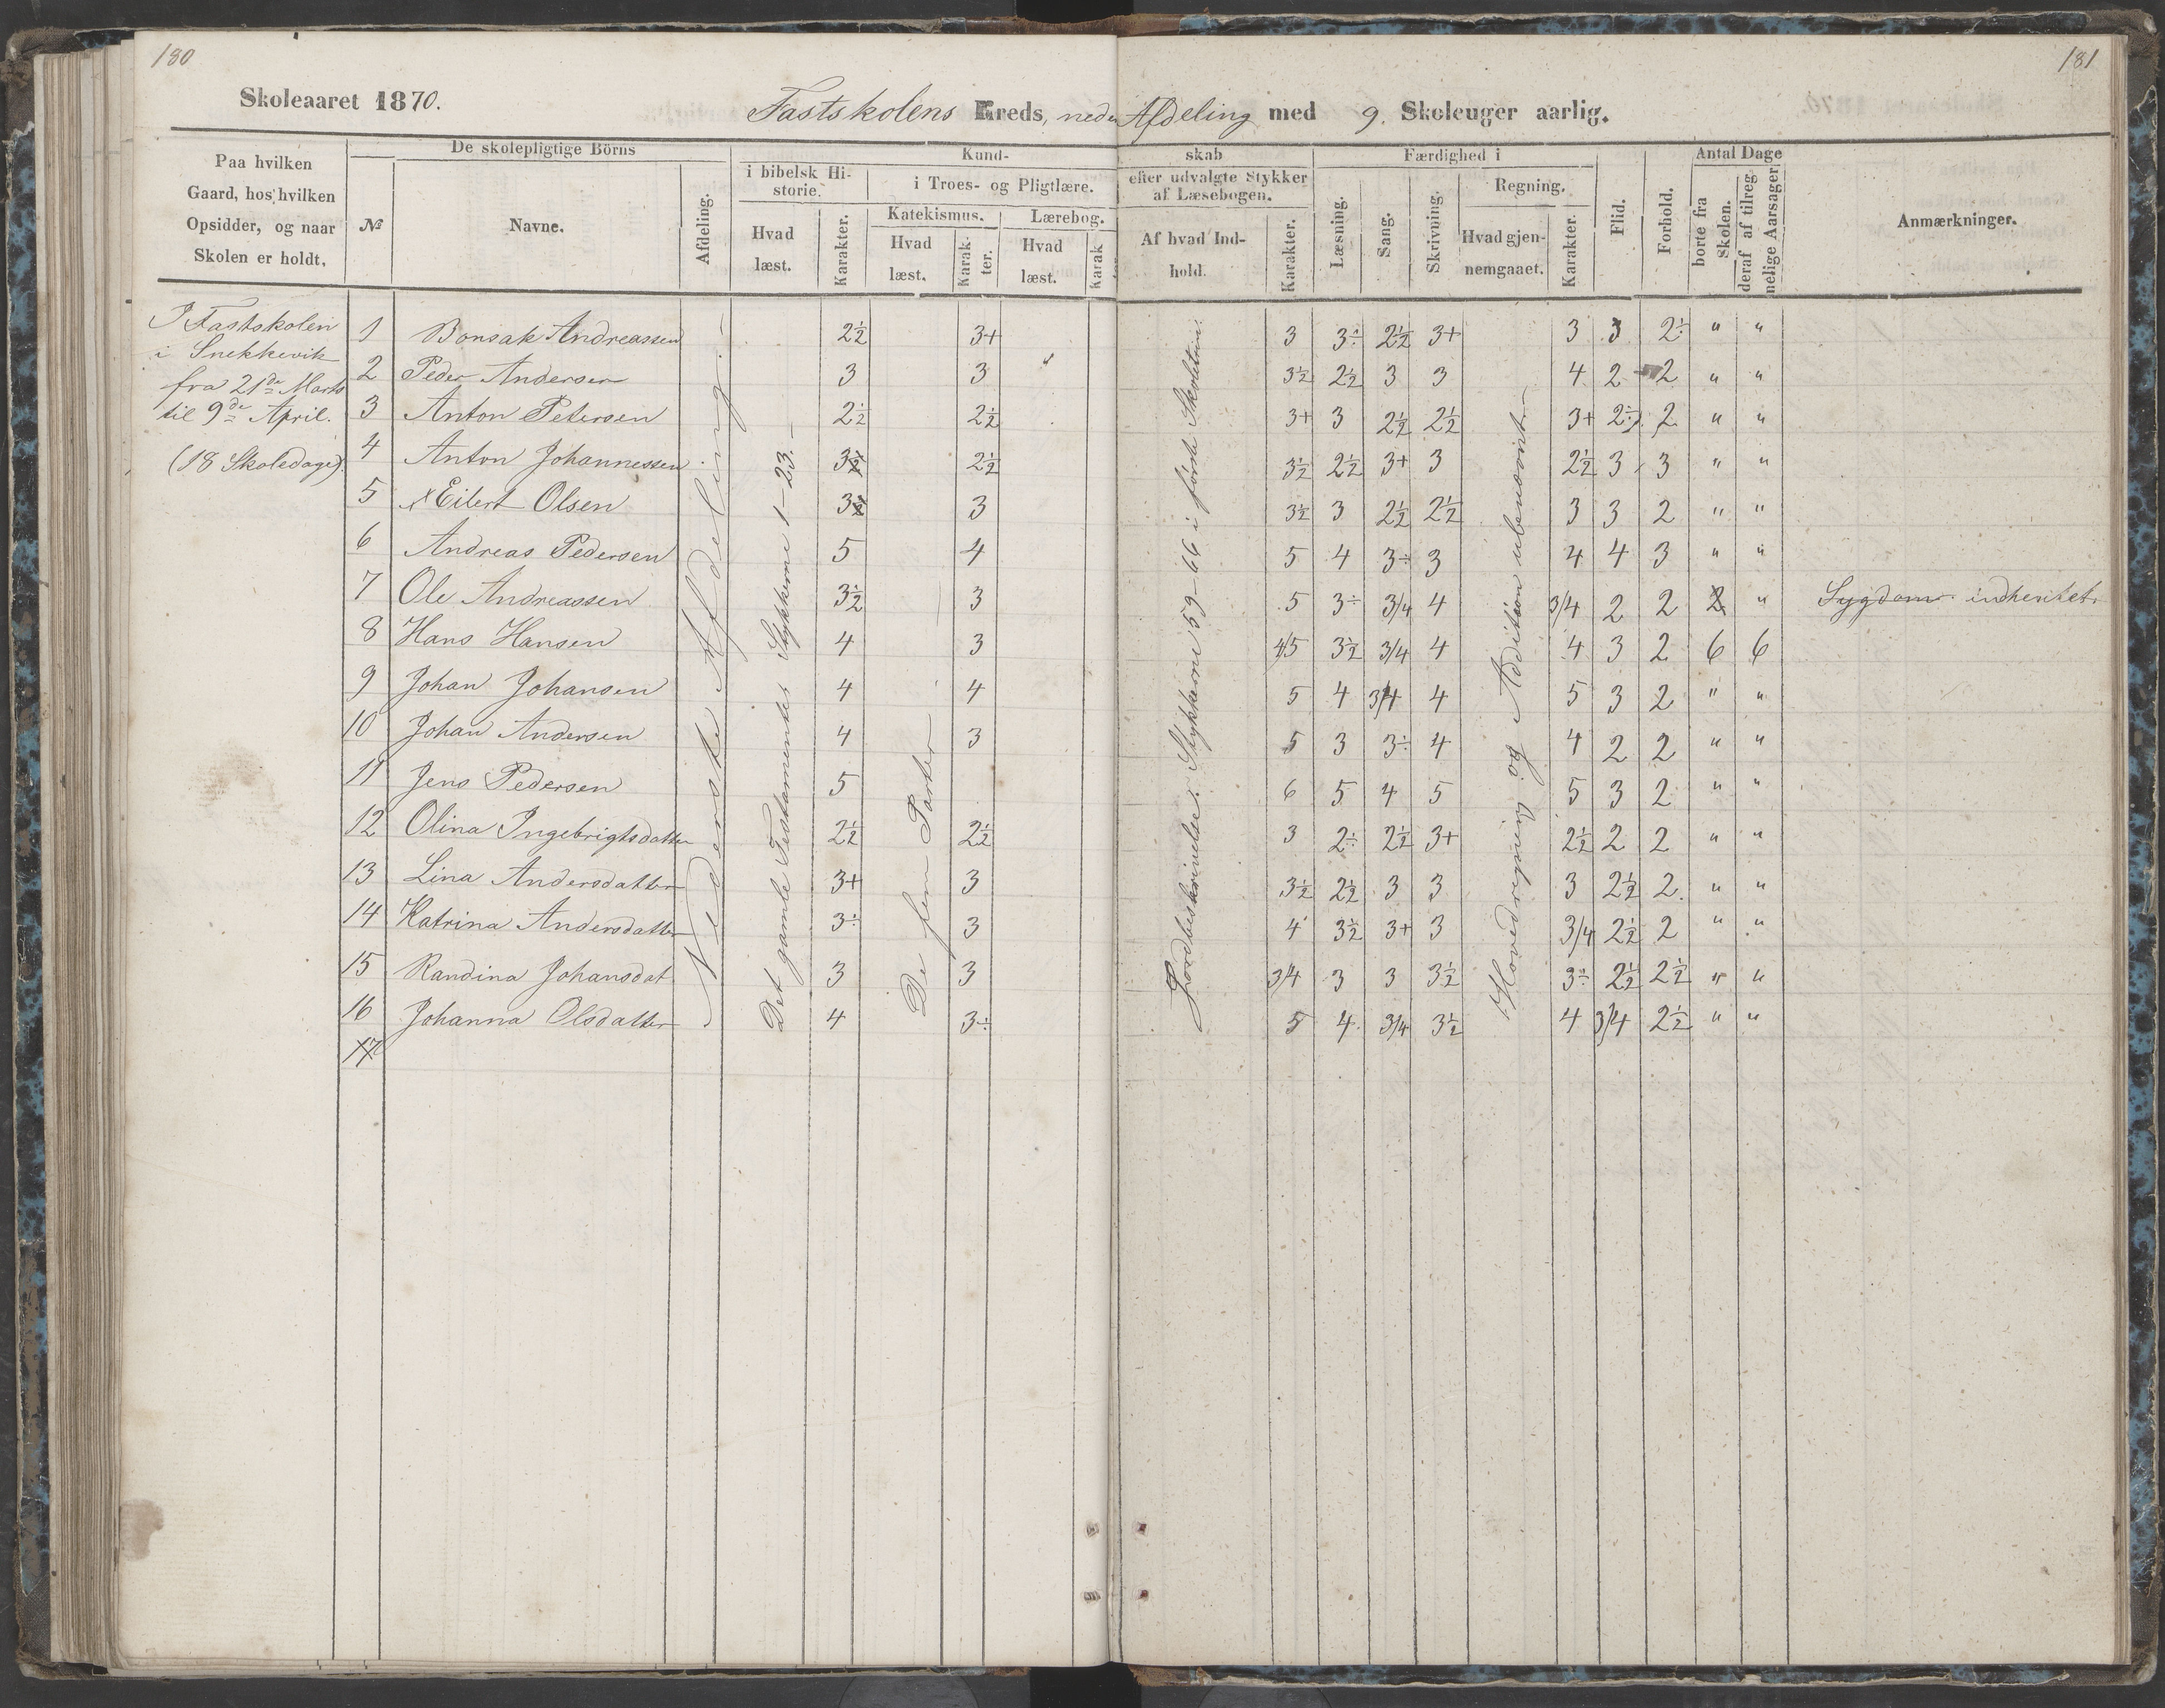 180
181
Skoleaaret 1870.
Fastskolens Kreds, neder Afdeling med 9. Skoleuger aarlig.
Paa hvilken Gaard, hos hvilken Opsidder, og naar Skolen er holdt.
De skolepligtige Börns
№
Navne.
Afdeling.
Kundskab
i bibelsk Historie.
Hvad læst.
Karakter.
i Troes- og Pligtlære.
Katekismus.
Hvad læst.
Karakter.
Lærebog.
Hvad læst.
Karakter
efter udvalgte Stykker af Læsebogen.
Af hvad Indhold.
Karakter.
Færdighed i
Læsning.
Sang.
Skrivning.
Regning.
Hvad gjennemgaaet.
Karakter.
Flid.
Forhold.
Antal Dage
borte fra Skolen.
deraf af tilregnelige Aarsager.
Anmærkninger.
I Fastskolen
i Snekkevik
fra 21de Marts
til 9de April.
(18 Skoledage).
Nederste Afdeling.
Det gamle Testamentes Stykkerne 1-23.
De fem Parter
Jordbeskrivelse: Stykkerne 59-66 i første Skoletrin.
Hovedregning og Addition ubenævnt
1 Bonsak Andreassen 2½ 3+ 3 3÷ 2½ 3+ 3 3 2÷ " "
2 Peder Andersen 3 3 " 3½ 2½ 3 3 4 2 2 " "
3 Anton Petersen 2½ 2½ 3+ 3 2½ 2½ 3+ 2÷ 2 " "
4 Anton Johannessen 3 2½ 3½ 2½ 3+ 3 2½ 3 3 " "
5 Eilert Olsen 3 3 3½ 3 2½ 2½ 3 3 2 " "
6 Andreas Pedersen 5 4 5 4 3÷ 3 4 4 3 " "
7 Ole Andreassen 3½ 3 5 3÷ 3/4 4 3/4 2 2 2 " Sygdom indhentet.
8 Hans Hansen 4 3 4/5 3½ 3/4 4 4 3 2 6 6
9 Johan Johansen 4 4 5 4 3/4 4 5 3 2 " "
10 Johan Andersen 4 3 5 3 3÷ 4 4 2 2 " "
11 Jens Pedersen 5 6 5 4 5 5 3 2 " "
12 Olina Ingebrigtsdatter 2½ 2½ 3 2÷ 2½ 3+ 2½ 2 2 " "
13 Lina Andersdatter 3+ 3 3½ 2½ 3 3 3 2½ 2 " "
14 Katrina Andersdatter 3÷ 3 4 3½ 3+ 3 3/4 2½ 2 " "
15 Randina Johansdat 3 3 3/4 3 3 3½ 3÷ 2½ 2½ " "
16 Johanna Olsdatter 4 3÷ 5 4 3/4 3½ 4 3/4 2½ " "
17